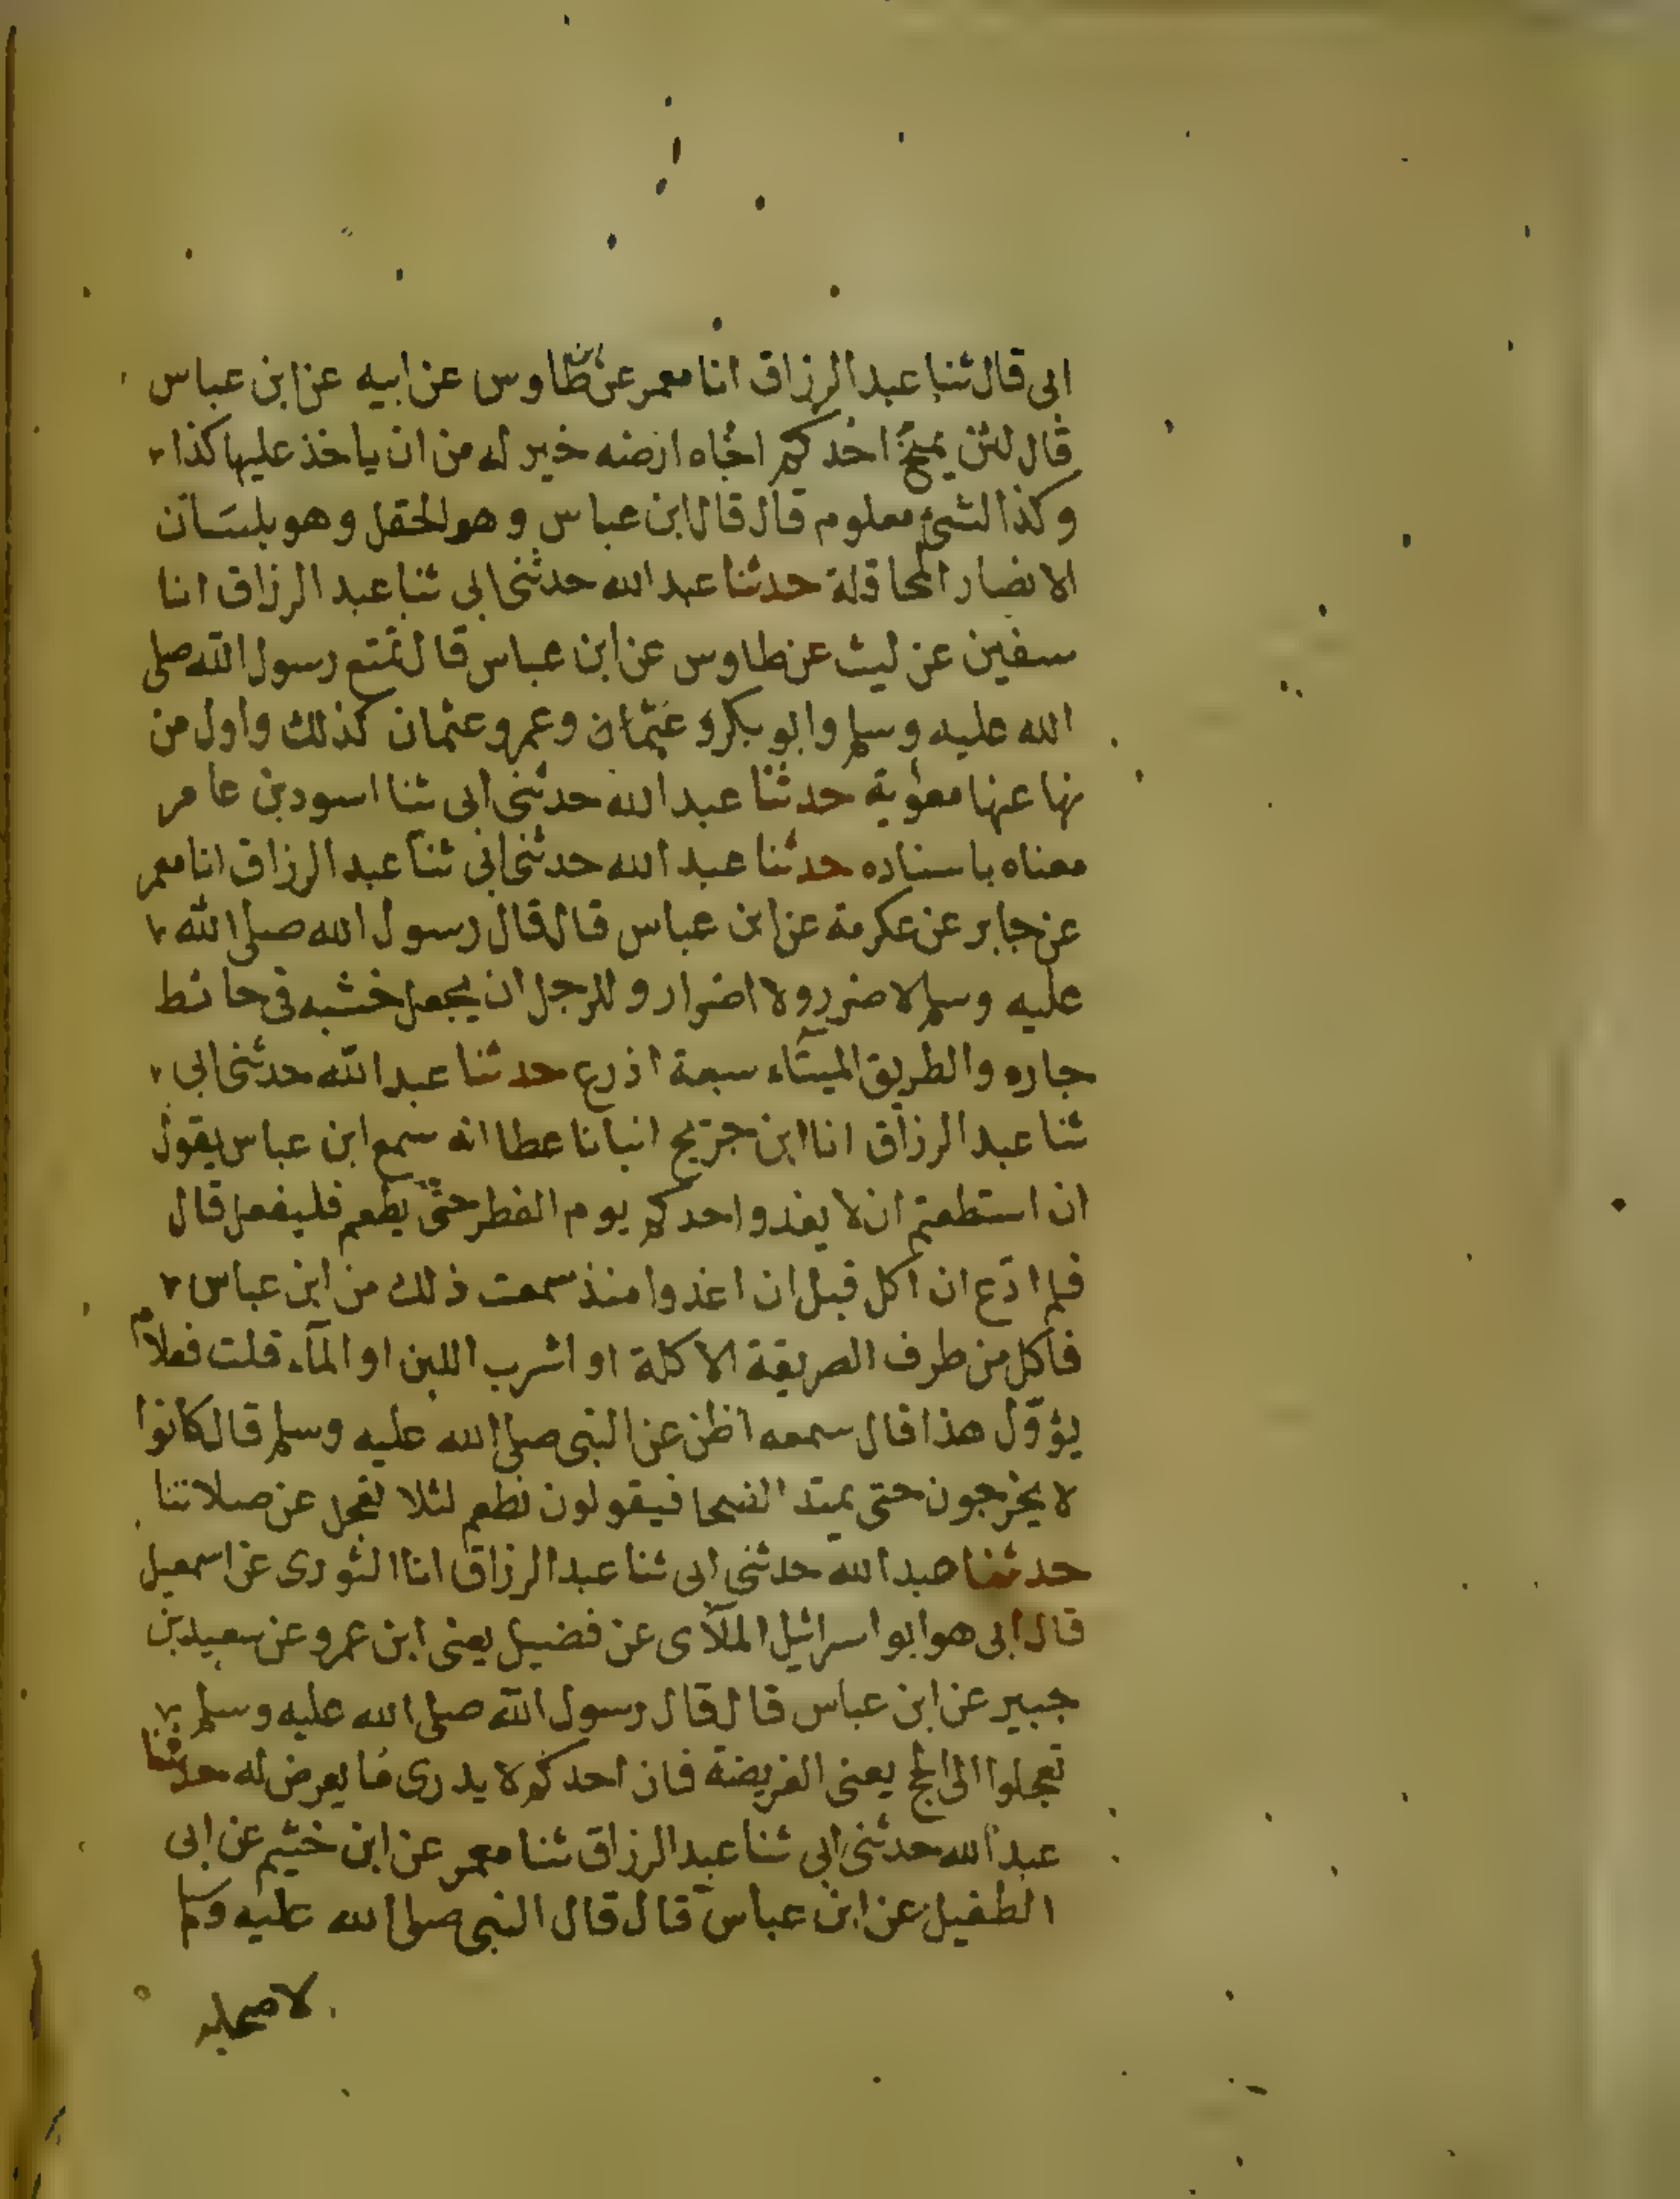 ابى قال ثنا عبد الرزاق انا معمر عن ابن طاوس عن ابيه عن ابن عباس
قال لئن يمنح احدكم اخاه ارضه خير له من ان ياخذ عليها كذا
وكذا لشئ معلوم قال قال ابن عباس وهو الحقل وهو بلسان
الانصار المحاقلة حدثنا عبد الله حدثنى ابى ثنا عبد الرزاق انا
سفين عن ليث عن طاوس عن ابن عباس قال تمتع رسول الله صلى
الله عليه وسلم وابو بكر وعثمان وعمر وعثمان كذلك واول من
نها عنها معوية حدثنا عبد الله حدثنى ابى ثنا اسود بن عامر
معناه باسناده حدثنا عبد الله حدثنى ابى ثنا عبد الرزاق انا معمر
عن جابر عن عكرمة عن ابن عباس قال قال رسول الله صلى الله
عليه وسلم لا ضرر ولا اضرار وللرجل ان يجعل خشبه فى حائط
جاره والطريق الميتاء سبعة اذرع حدثنا عبد الله حدثنى ابى
ثنا عبد الرزاق انا ابن جريج انبانا عطا انه سمع ابن عباس يقول
ان استطعتم ان لا يغدوا احدكم يوم الفطر حتى يطعم فليفعل قال
فلم ادع ان اكل قبل ان اغدوا منذ سمعت ذلك من ابن عباس
فاكل من طرف الصريقة الاكلة او اشرب اللبن او المآء قلت فعلام
يؤول هذا قال سمعه اظن عن النبى صلى الله عليه وسلم قال كانوا
لا يخرجون حتى يمتد الضحا فيقولون نطعم لئلا نعجل عن صلاتنا
حدثنا عبد الله حدثنى ابى ثنا عبد الرزاق انا الثورى عن اسمعيل
قال ابى هو ابو اسرائيل الملآى عن فضيل يعنى ابن عمرو عن سعيد بن
جبير عن ابن عباس قال قال رسول الله صلى الله عليه وسلم
تعجلوا الى الحج يعنى الفريضة فان احدكم لا يدرى ما يعرض له حدثنا
عبد الله حدثنى ابى ثنا عبد الرزاق ثنا معمر عن ابن خثيم عن ابى
الطفيل عن ابن عباس قال قال النبى صلى الله عليه وسلم
لاصحابه